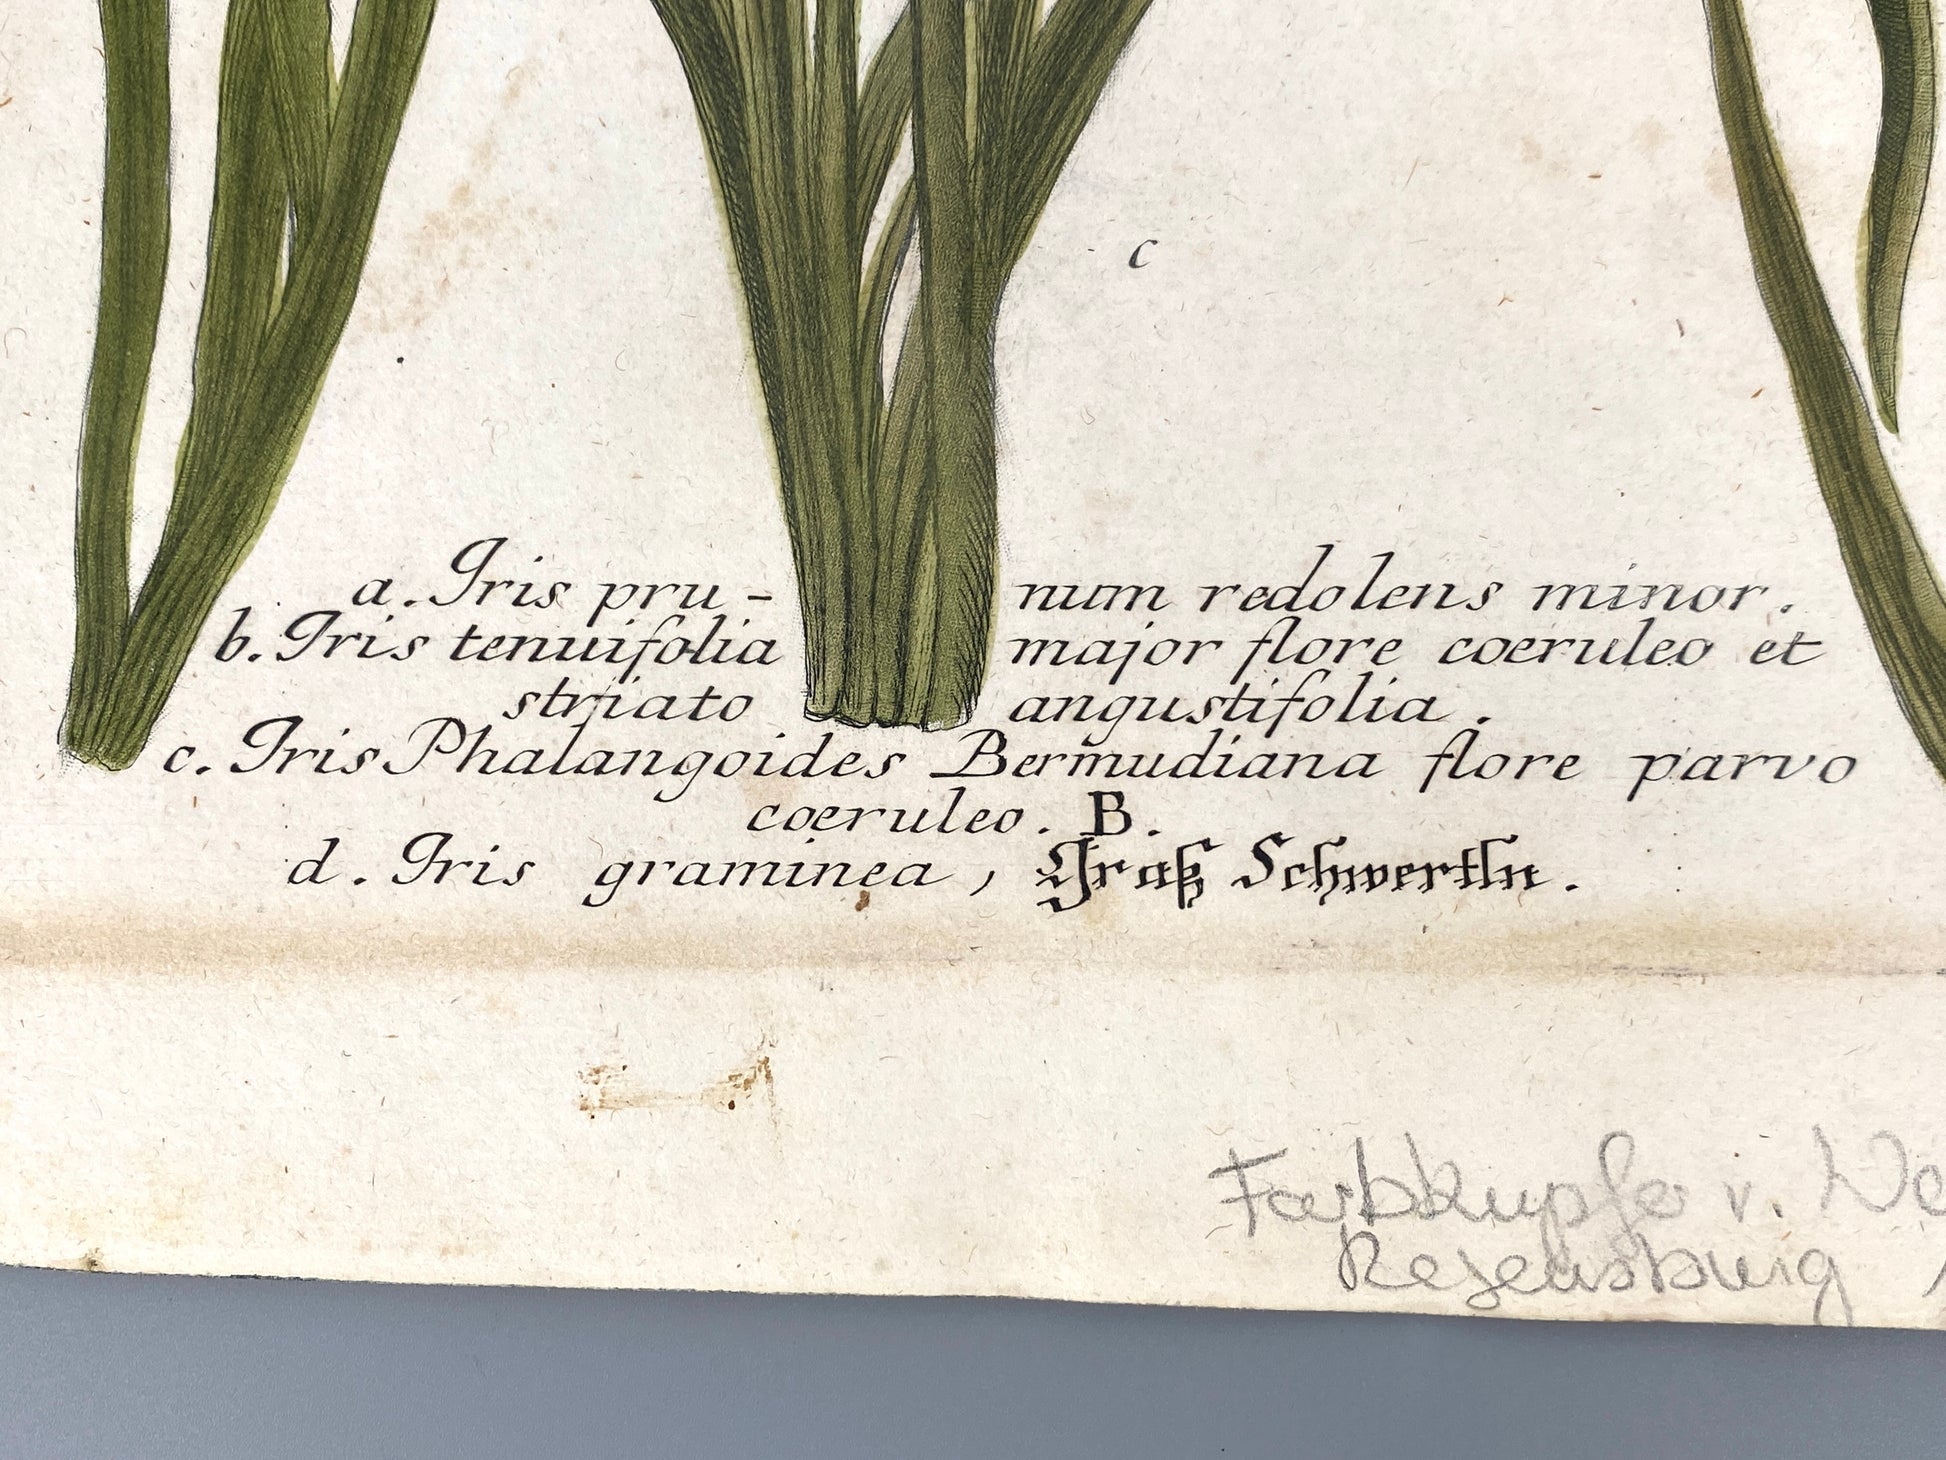 c
a. Iris pru- num redolens minor.
b. Iris tenuifolia major flore coeruleo et
striato angustifolia.
c. Iris Phalangoides Bermudiana flore parvo
coeruleo. B.
d. Iris graminea, Graß Schwertln.
Farbkupfer v.
Regensburg